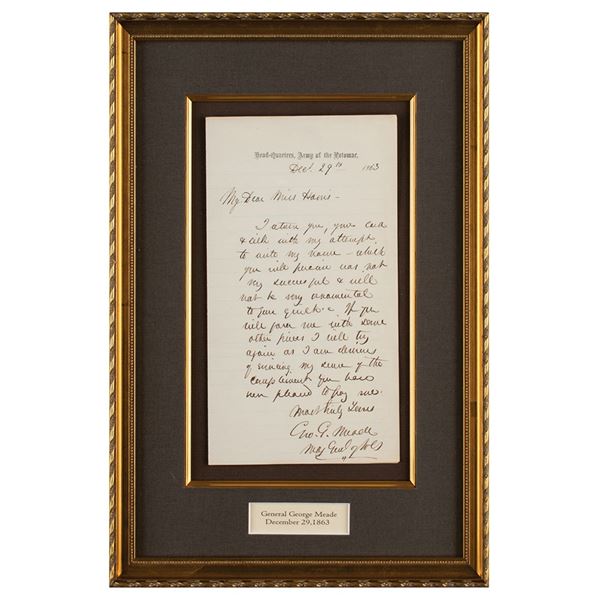 Head-Quarters, Army of the Potomac,
Dec. 29th 1863
My Dear Miss Harris -
I return you, your card
& silk with my attempt
to write my name - which
you will perceive was not
very successful & will
not be very ornamental
to your quilt - If you
will favor me with some
other pieces I will try
again as I am desirous
of evincing my sense of the
compliment you have
been pleased to pay me.
Most truly Yours
Geo. G. Meade
Maj Genl of Vols
General George Meade
December 29,1863